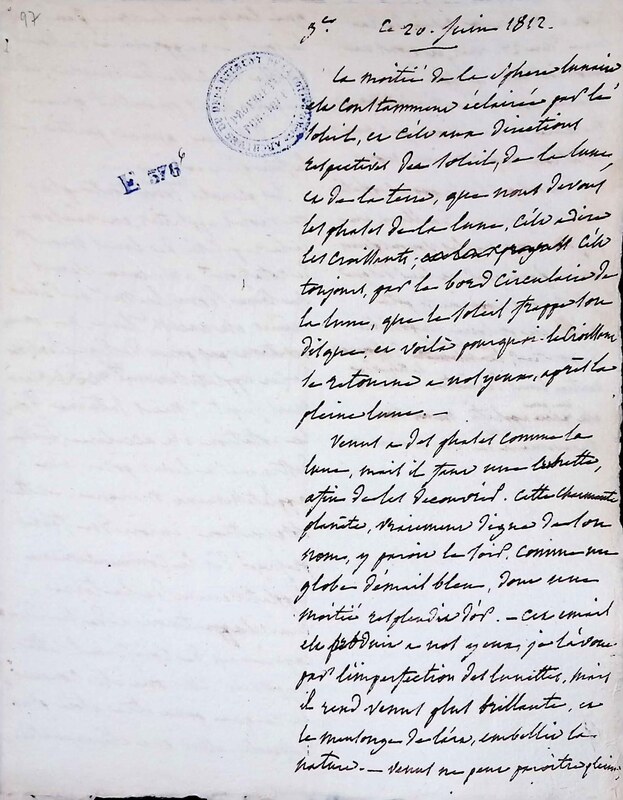 97
3e. Ce 20. Juin 1812.
ARCHIVES DU DEPARTEMENT
E 376
La moitié de la sphere lunaire
est Constamment éclairée par le
Soleil, et c'est aux directions
respectives du Soleil, de la lune,
et de la terre, que nous devons
les phases de la lune, c'est a dire
les croissants; c'est
toujours, par le bord Circulaire de
la lune, que le Soleil frappe son
disque, et voila pourquoi le Croissant
se retourne a nos yeux, après la
pleine lune. —
Venus a des phases comme la
lune, mais il faut une lunette,
afin de les decouvrir. Cette charmante
planète, vraiement digne de son
nom, y paroit le soir, Comme un
globe d'émail bleu, dont une
moitié resplendit d'or. — Cet email
est produit a nos yeux, je l'avoue
par l'imperfection des lunettes, mais
il rend venus plus brillante, et
le mensonge de l'art, embellit la
nature. — Venus ne peut paroitre pleine,